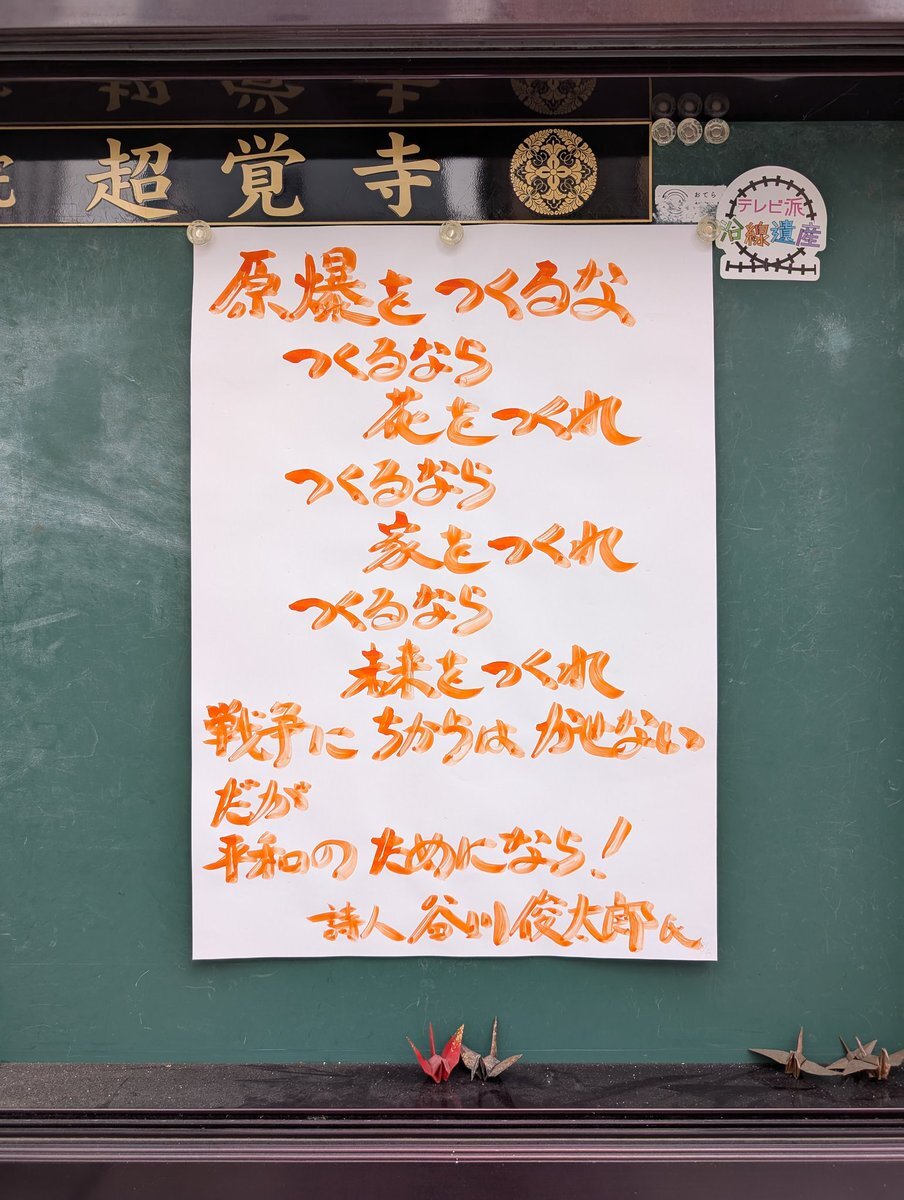 超覚寺
おてら
テレビ派
沿線遺産
原爆をつくるな
つくるなら
花をつくれ
つくるなら
家をつくれ
つくるなら
未来をつくれ
戦争に ちからは かせない
だが
平和の ためになら!
詩人 谷川俊太郎氏